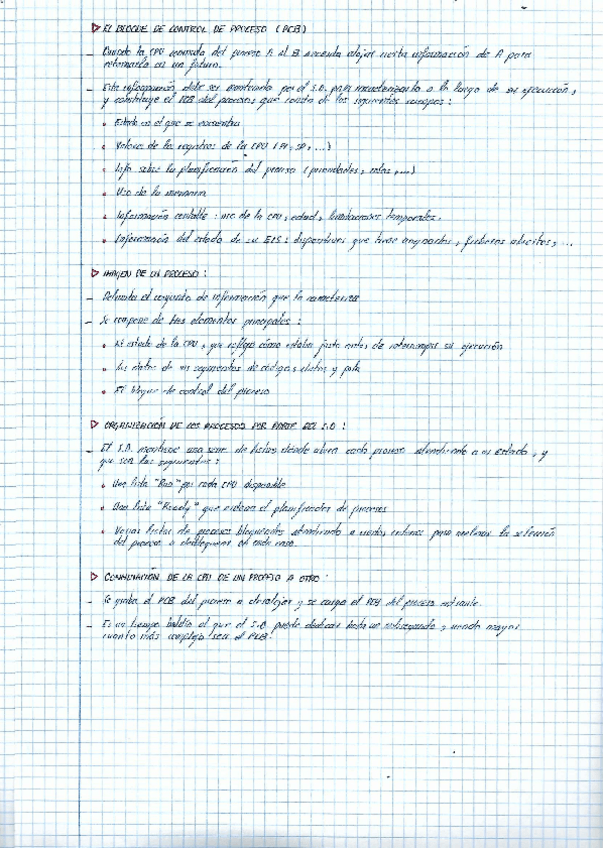 ▷ EL BLOQUE DE CONTROL DE PROCESO (PCB)
– Cuando la CPU conmuta del proceso A al B necesita alojar cierta información de A para
retomarla en un futuro.
– Esta información debe ser mantenida por el S.O. para caracterizarlo a lo largo de su ejecución,
y constituye el PCB del proceso, que consta de los siguientes campos:
• Estado en el que se encuentra
• Valores de los registros de la CPU (PC, SP, ...)
• Info sobre la planificación del proceso (prioridades, colas, ...)
• Uso de la memoria
• Información contable: uso de la CPU, edad, limitaciones temporales.
• Información del estado de su E/S: dispositivos que tiene asignados, ficheros abiertos, ...
▷ IMAGEN DE UN PROCESO:
– Delimita el conjunto de información que lo caracteriza
– Se compone de tres elementos principales:
• El estado de la CPU, que refleja cómo estaba justo antes de interrumpir su ejecución
• Los datos de sus segmentos de código, datos y pila
• El bloque de control del proceso
▷ ORGANIZACIÓN DE LOS PROCESOS POR PARTE DEL S.O:
– El S.O. mantiene una serie de listas donde ubica cada proceso atendiendo a su estado, y
que son las siguientes:
• Una lista "Run" por cada CPU disponible
• Una lista "Ready" que ordena el planificador de procesos
• Varias listas de procesos bloqueados atendiendo a ciertos criterios para la selección
del proceso a desbloquear en cada caso.
▷ CONMUTACIÓN DE LA CPU DE UN PROCESO A OTRO:
– Se graba el PCB del proceso a desalojar y se carga el PCB del proceso entrante.
– Es un tiempo baldío al que el S.O puede dedicar, siendo mayor
cuanto más complejo sea el PCB.